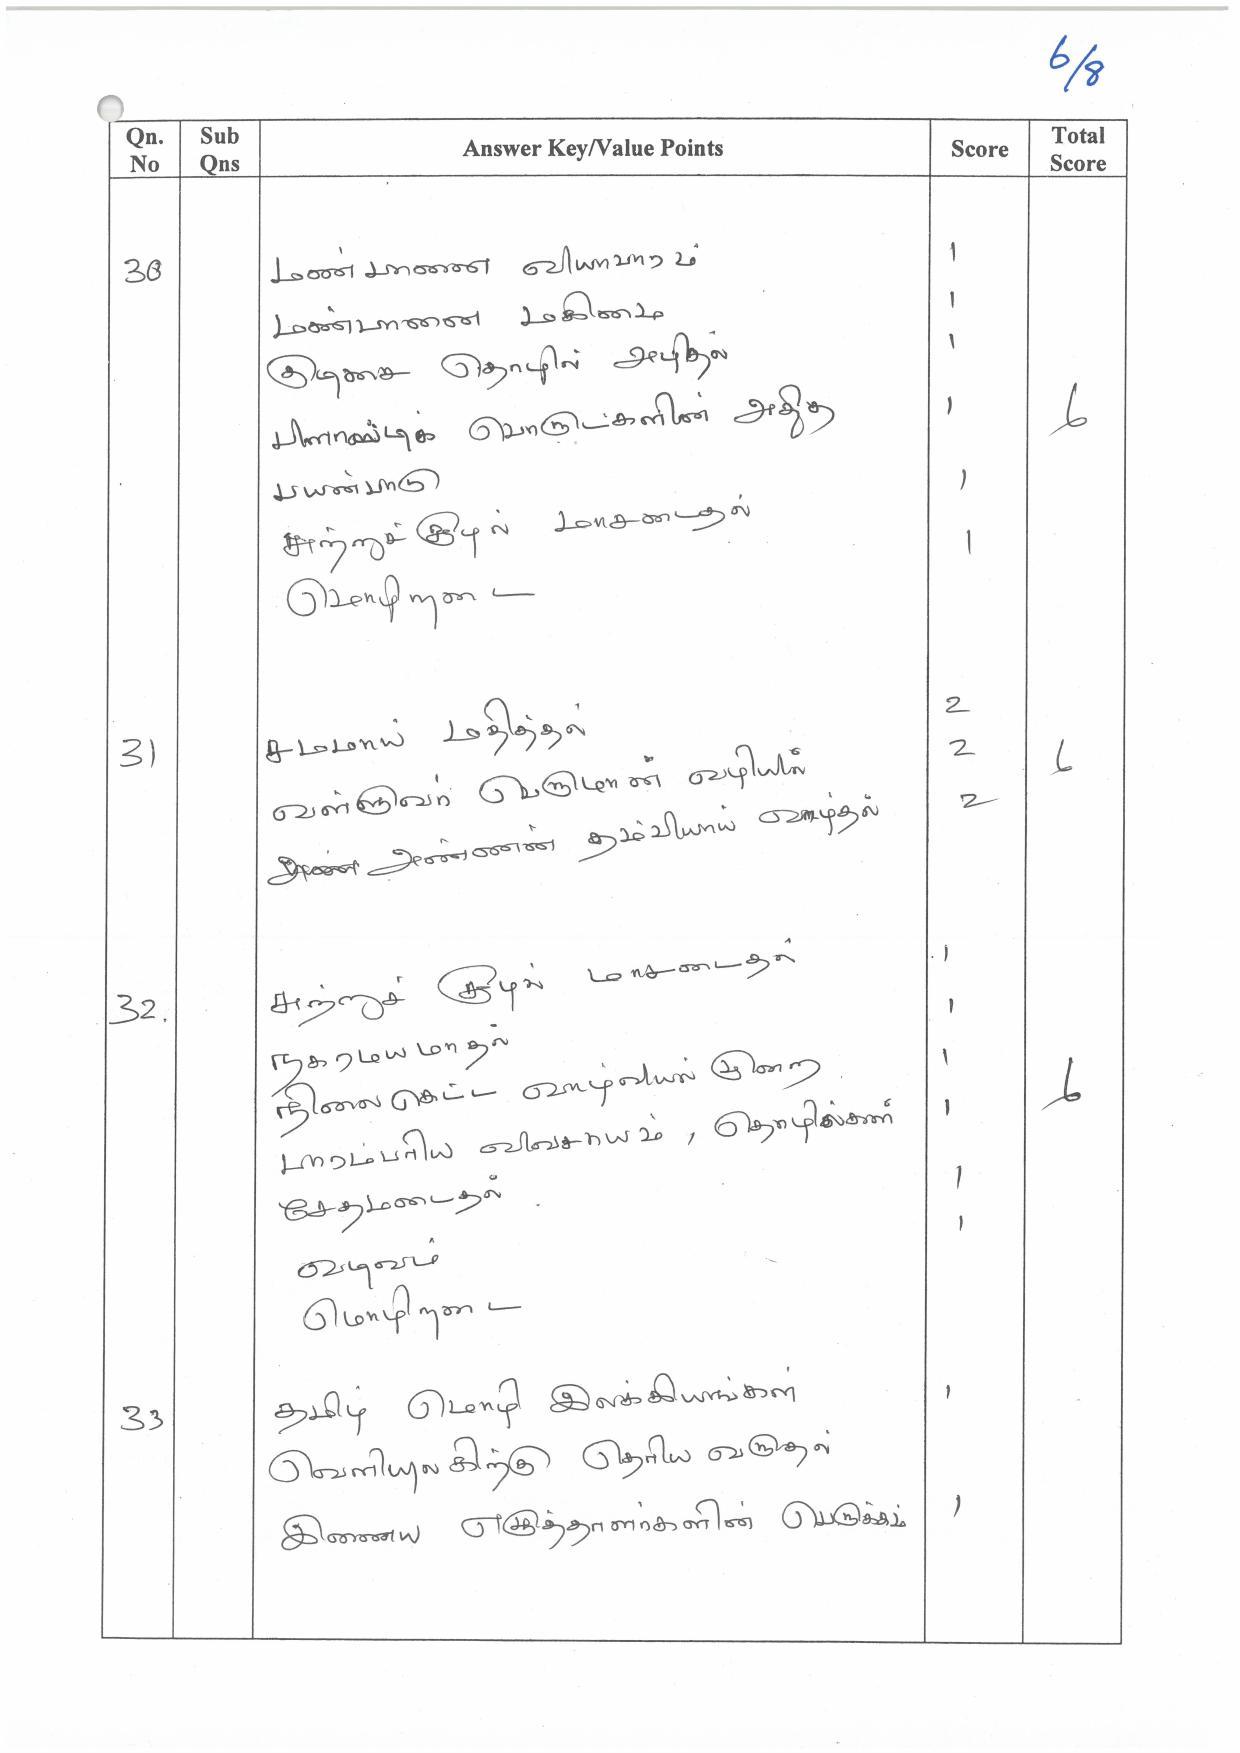 6/8
Qn. No | Sub Qns | Answer Key/Value Points | Score | Total Score
30 மண்பாணை வியாபாரம் 1
மண்பானை மகிமை 1
குடிசை தொழில் அழிதல் 1
பிளாஸ்டிக் பொருட்களின் அதித 1 6
பயன்பாடு 1
சுற்றுச்சூழல் மாசடைதல் 1
மொழிநடை
31 சமமாய் மதித்தல் 2
வள்ளுவர் பெருமான் வழியில் 2 6
அண்ணன் தம்பியாய் வாழ்தல் 2
32. சுற்றுச் சூழல் மாசடைதல் 1
நகரமயமாதல் 1
நிலைகெட்ட வாழ்வியல் முறை 1 6
பாரம்பரிய விவசாயம் , தொழில்கள் 1
சேதமடைதல் 1
வடிவம் 1
மொழிநடை
33 தமிழ் மொழி இலக்கியங்கள் 1
வெளியுலகிற்கு தெரிய வருதல்
இணைய எழுத்தாளர்களின் பெருக்கம் 1